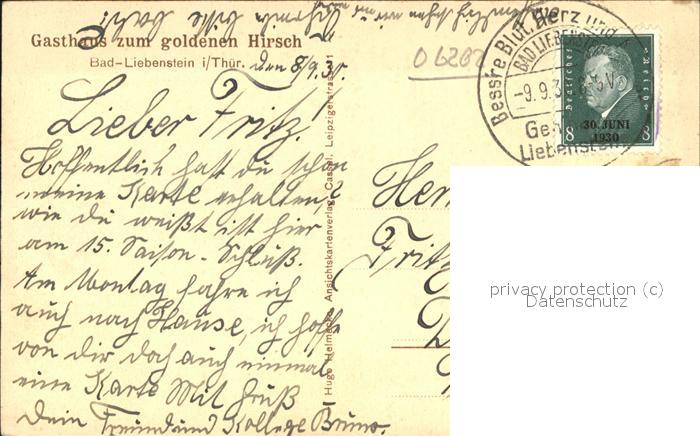 Gasthaus zum goldenen Hirsch
Bad-Liebenstein i/Thür. den 8/9.30.
Lieber Fritz!
Hoffentlich hast du schon
meine Karte erhalten,?
wie du weißt ist hier
am 15. Saison-Schluß.
Am Montag fahre ich
auch nach Hause, ich hoffe
von dir doch auch einmal
eine Karte Mit Gruß
Dein Freund und Kollege Bruno.
Hugo Helmecke, Ansichtskartenverlag, Cassel, Leipzigerstrasse
06282
Bessre Blut, Herz und
BAD LIEBENST
-9.9.3
Liebenstein
Deutsches Reich
30. JUNI
1930
8 8
Herrn
Fritz
privacy protection (c)
Datenschutz